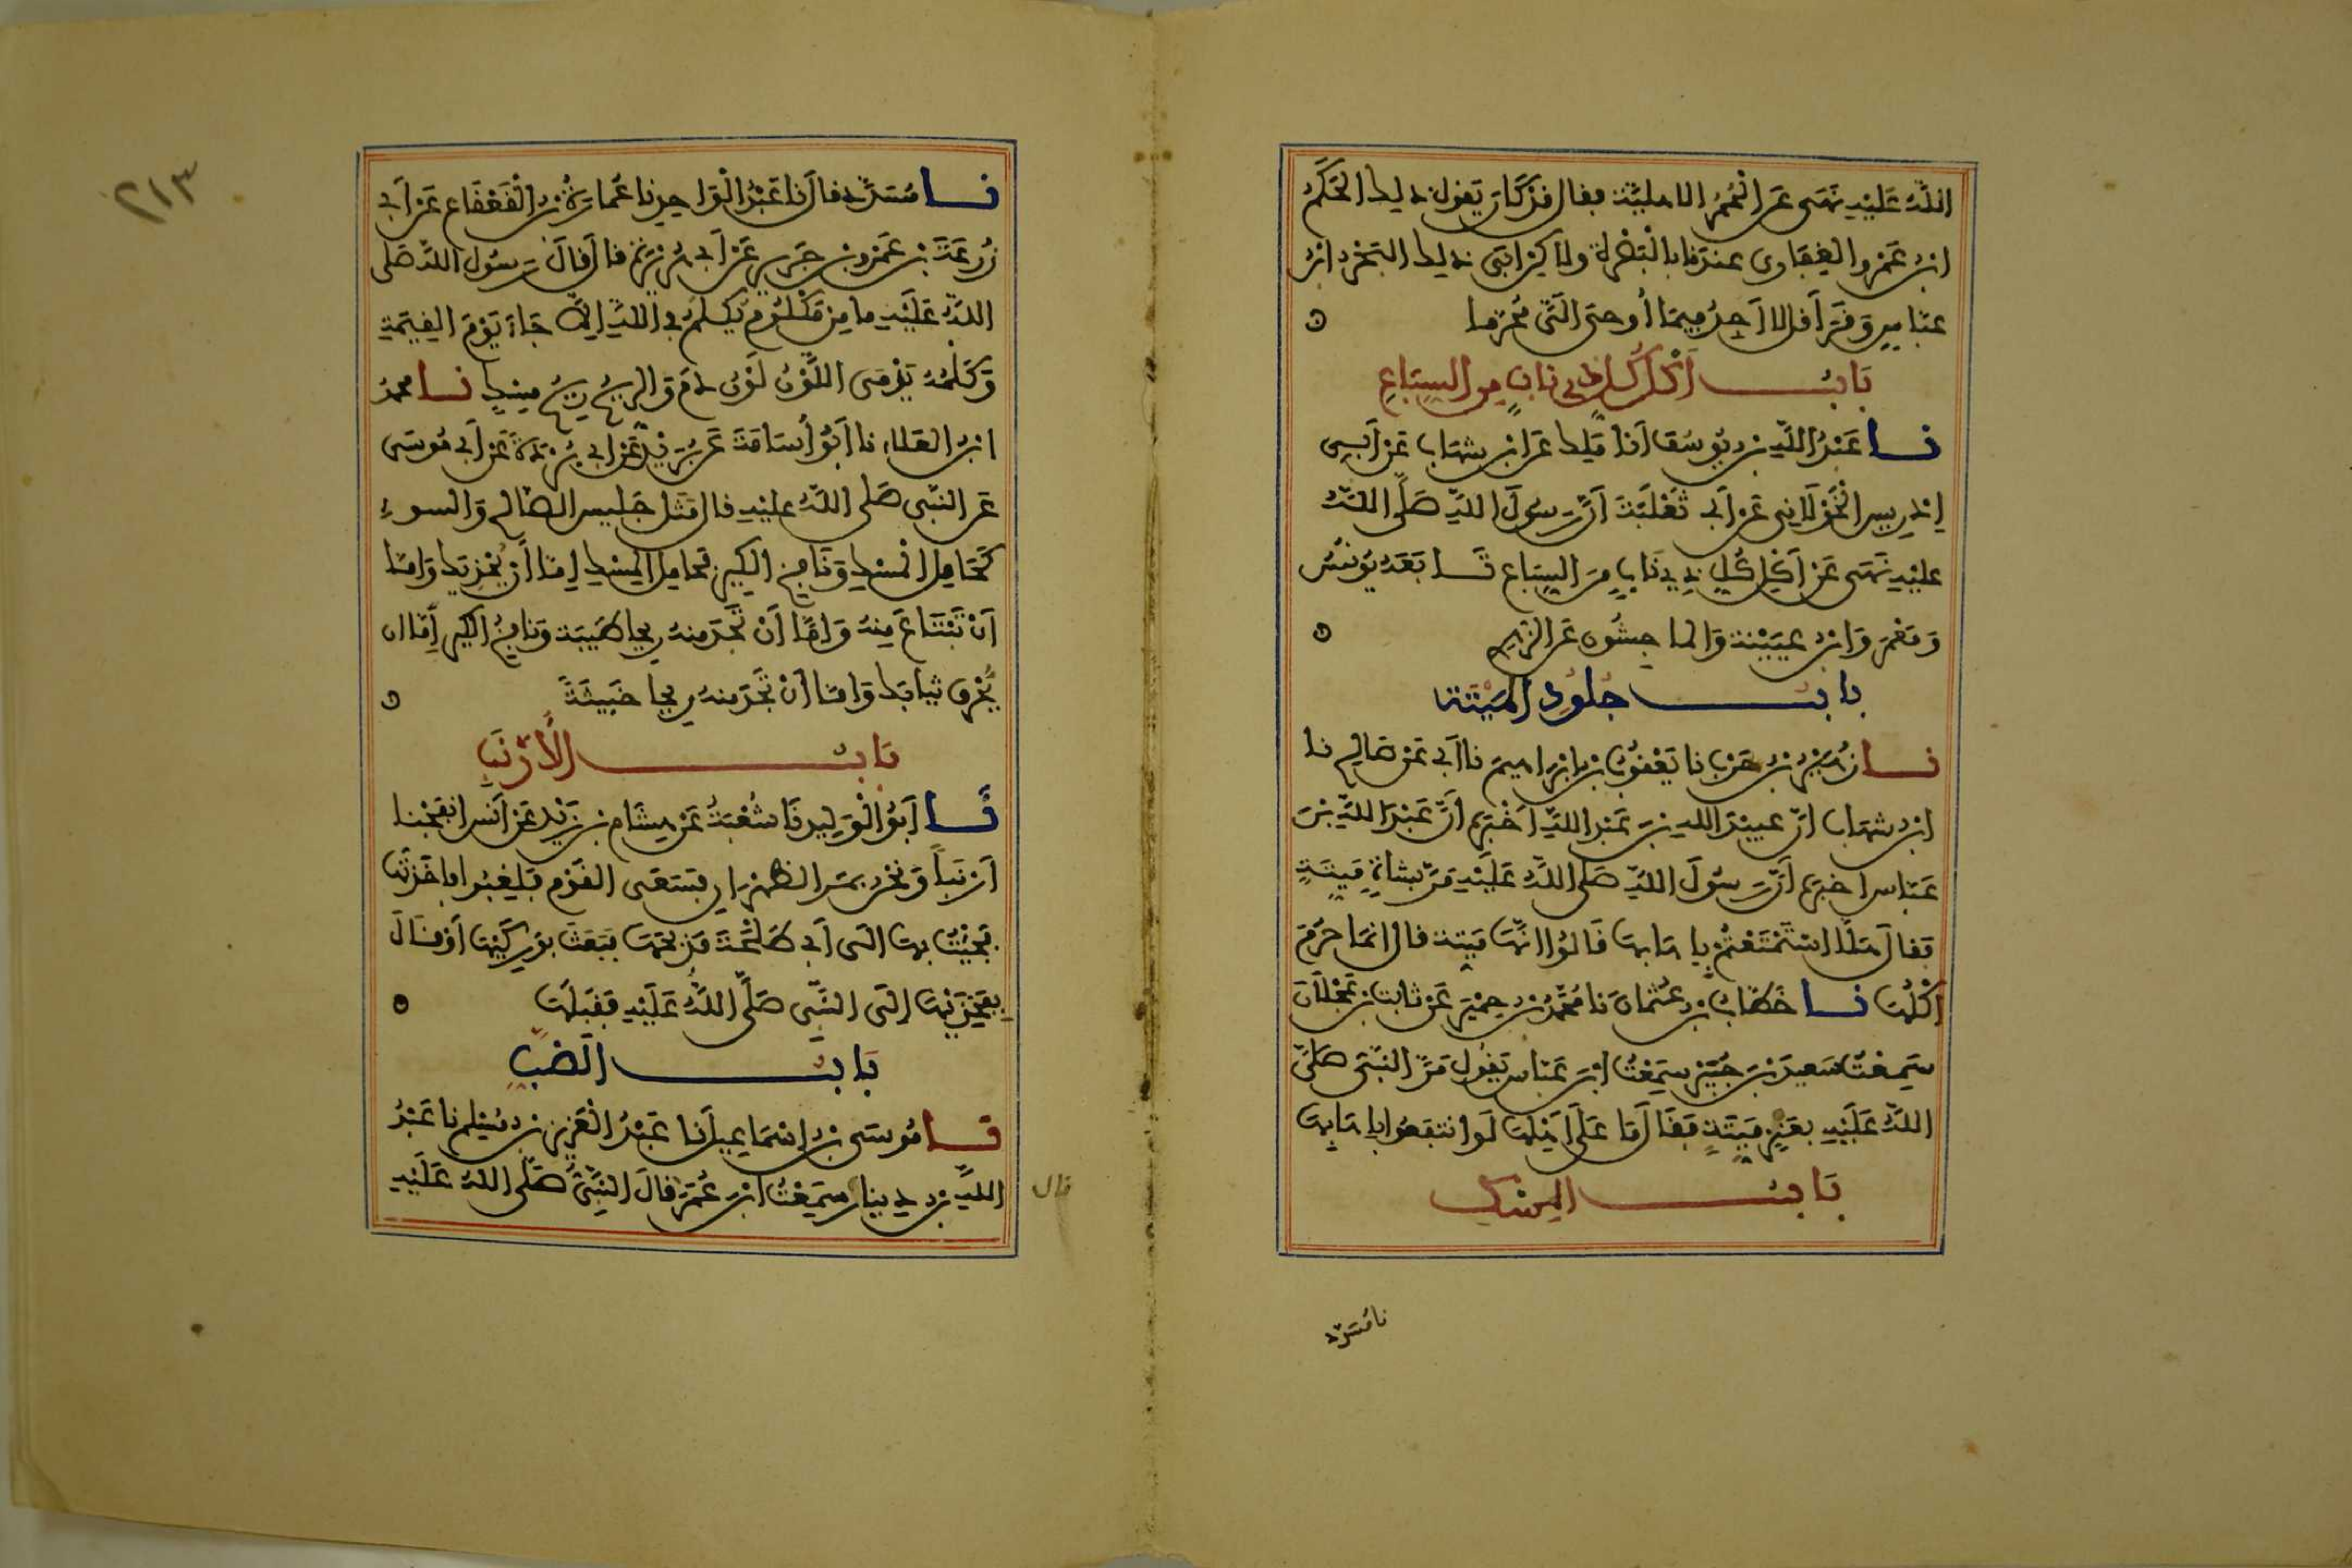 اللَّهُ عَلَيْهِ نَهَى عَنِ الْحُمُرِ الاهليَّة فقال قَدْ كَانَ يَقول ذلك الحَكَمُ
ابن عَمْرٍو الغِفَاري عندنا بالْبَصْرة ولكن ابَى ذلك البَحْر ابن
عبّاسٍ وَقَرَأ قل لا أجِدُ فيمَا أُوحِيَ الَيَّ مُحرّما
بَابُ أَكْل كُل ذِي نابٍ مِن السِبَاعِ
نا عَبْدُ اللَّهِ بن يُوسُفَ انا مَلِك عَن ابن شهَاب عَنْ أبِي
إدْرِيس الْخَوْلَانِي عَن أبي ثَعْلَبَةَ أنّ رَسُولَ اللَّهِ صَلَّى اللَّهُ
عليْهِ نَهَى عَنْ أَكْلِ كُلِ ذِي نَابٍ مِنَ السِبَاع تَابَعَهُ يُونُسُ
وَمَعْمَرٌ وَابن عيَيْنة وَالماجِشُون عَن الزهري
بابُ جلُودِ الْمَيْتَة
نا زُهَيْر بن حَرْب نا يَعْقُوبُ بن ابْرَاهِيمَ نا أبي عَن صَالِح نا
ابن شهَاب انّ عبيْدَ الله بن عَبْد اللَّهِ اَخْبَره أنَّ عَبْدَ اللَّهِ بْنَ
عَبّاس اخبره أنَّ رَسُولَ اللَّهِ صَلَّى اللَّهُ عَلَيْهِ مَرّ بشاةٍ مَيتَةٍ
فَقال هَلَّا اسْتَمْتَعْتُمْ بإهَابهَا قَالُوا انّهَا مَيتة قال انمَا حَرُمَ
اكْلُهَا نا خَطّابُ بن عُثمانَ نا مُحَمَّدُ بن حِمْيَر عَن ثابت بن عَجْلَان
سَمِعْتُ سَعِيدَ بْنَ جُبَيْر سَمِعْتُ ابْنَ عَبّاس يَقول مَرّ النَّبِيّ صَلَّى
اللَّهُ عَلَيْهِ بعَنْزٍ مَيتَةٍ فَقَال مَا عَلَى أهْلِهَا لَو انتفعُوا بإهَابِهَا
بَابُ المِسْكِ
نا مُسَدّد
٢١٣
نا مُسَدَّد قال نا عَبْدُ الْوَاحِد نا عُمارَةُ بن الْقَعْقَاع عَن أبي
زُرْعَةَ بْن عَمْرِو بن جَرِيرٍ عَنْ أبي هُرَيْرَة قال قالَ رَسُول اللَّهِ صَلى
اللَّهُ عَلَيْهِ ما مِن مَكْلُومٍ يُكلَمُ في اللَّهِ إلاَّ جَاءَ يَوْمَ القِيَمَةِ
وَكَلْمُهُ يَدْمَى اللَّوْنُ لَوْنُ دَمٍ وَالريحُ رِيحُ مِسْكٍ نا محمدُ
ابن العَلاء نا أبُو أُسَامَةَ عَن بُرَيْد عَن أبي بُرْدَةَ عَن أبي مُوسَى
عَن النّبي صَلى اللَّهُ عليْهِ قال مَثَل جَليس الصَالح وَالسوءِ
كَحَامِلِ الْمسْكِ وَنَافِخِ الكِيرِ فحَامِل المِسْكِ إمَّا أن يُحْذِيَك وَامَّا
أنْ تَبْتَاعَ مِنهُ وَامَّا أنْ تَجِدَ مِنهُ ريحا طَيِبَة وَنَافِخُ الكير إمَّا ان
يُحْرِق ثيابَك وَامَّا أنْ تَجِدَ منهُ ريحا خَبِيثَةَ
بَابُ الأَرْنَبِ
نَا أبُو الْوَلِيد نَا شُعْبَةُ عَنْ هِشَام بن زَيْد عَن أنَس انفَجْنا
أرْنَباً وَنحْن بمَر الظهْرَان فسَعَى القَوْم فَلَغِبُوا فاخَذْتُهَا
فَجِئْتُ بهَا الَى أبي طَلْحَةَ فذَبحَهَا فَبَعَثَ بوَرِكَيْهَا أوْ قالَ
بِفَخِذَيْهَا إلَى النَّبِي صَلَّى اللَّهُ عَلَيْهِ فَقَبلَهَا
بَابُ الضَّبّ
نا مُوسَى بن إسْمَاعِيل نَا عَبْدُ الْعَزِيز بن مُسْلِم نا عَبْدُ
اللَّهِ بن دِينار سَمِعْتُ ابْنَ عُمَرَ قالَ النَّبِيُّ صَلَّى اللَّهُ عَلَيْهِ
قال